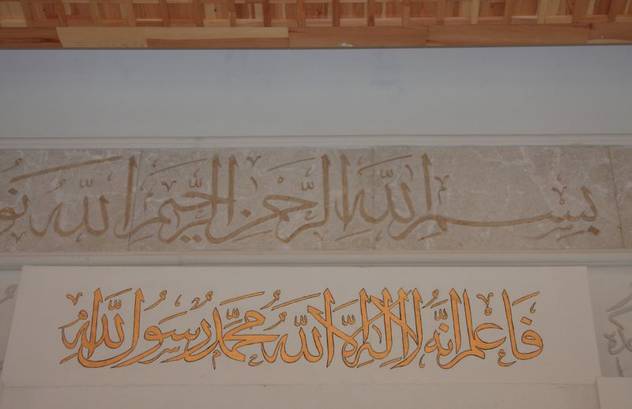 بسم الله الرحمن الرحيم الله نو
فاعلم انه لا اله الا الله محمد رسول الله